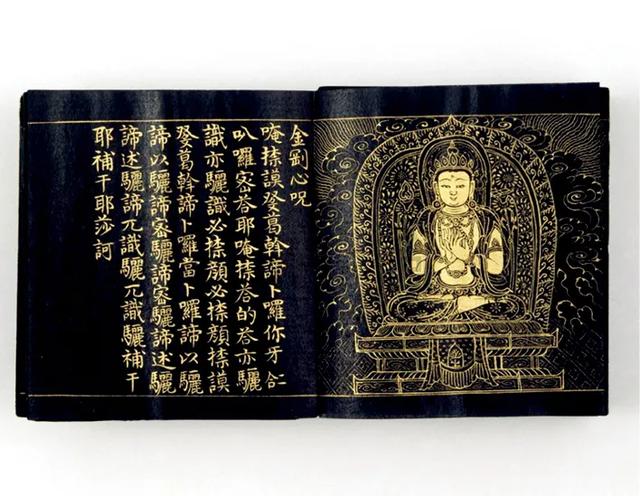 金剛心呪
唵捺謨癹葛斡諦卜囉你牙𠆙
叭囉密荅耶唵捺荅的荅亦驪
識亦驪識必捺顔必捺顔捺謨
癹葛斡諦卜囉當卜囉諦以驪
諦以驪諦密驪諦密驪諦述驪
諦述驪諦兀識驪兀識驪補干
耶補干耶莎訶